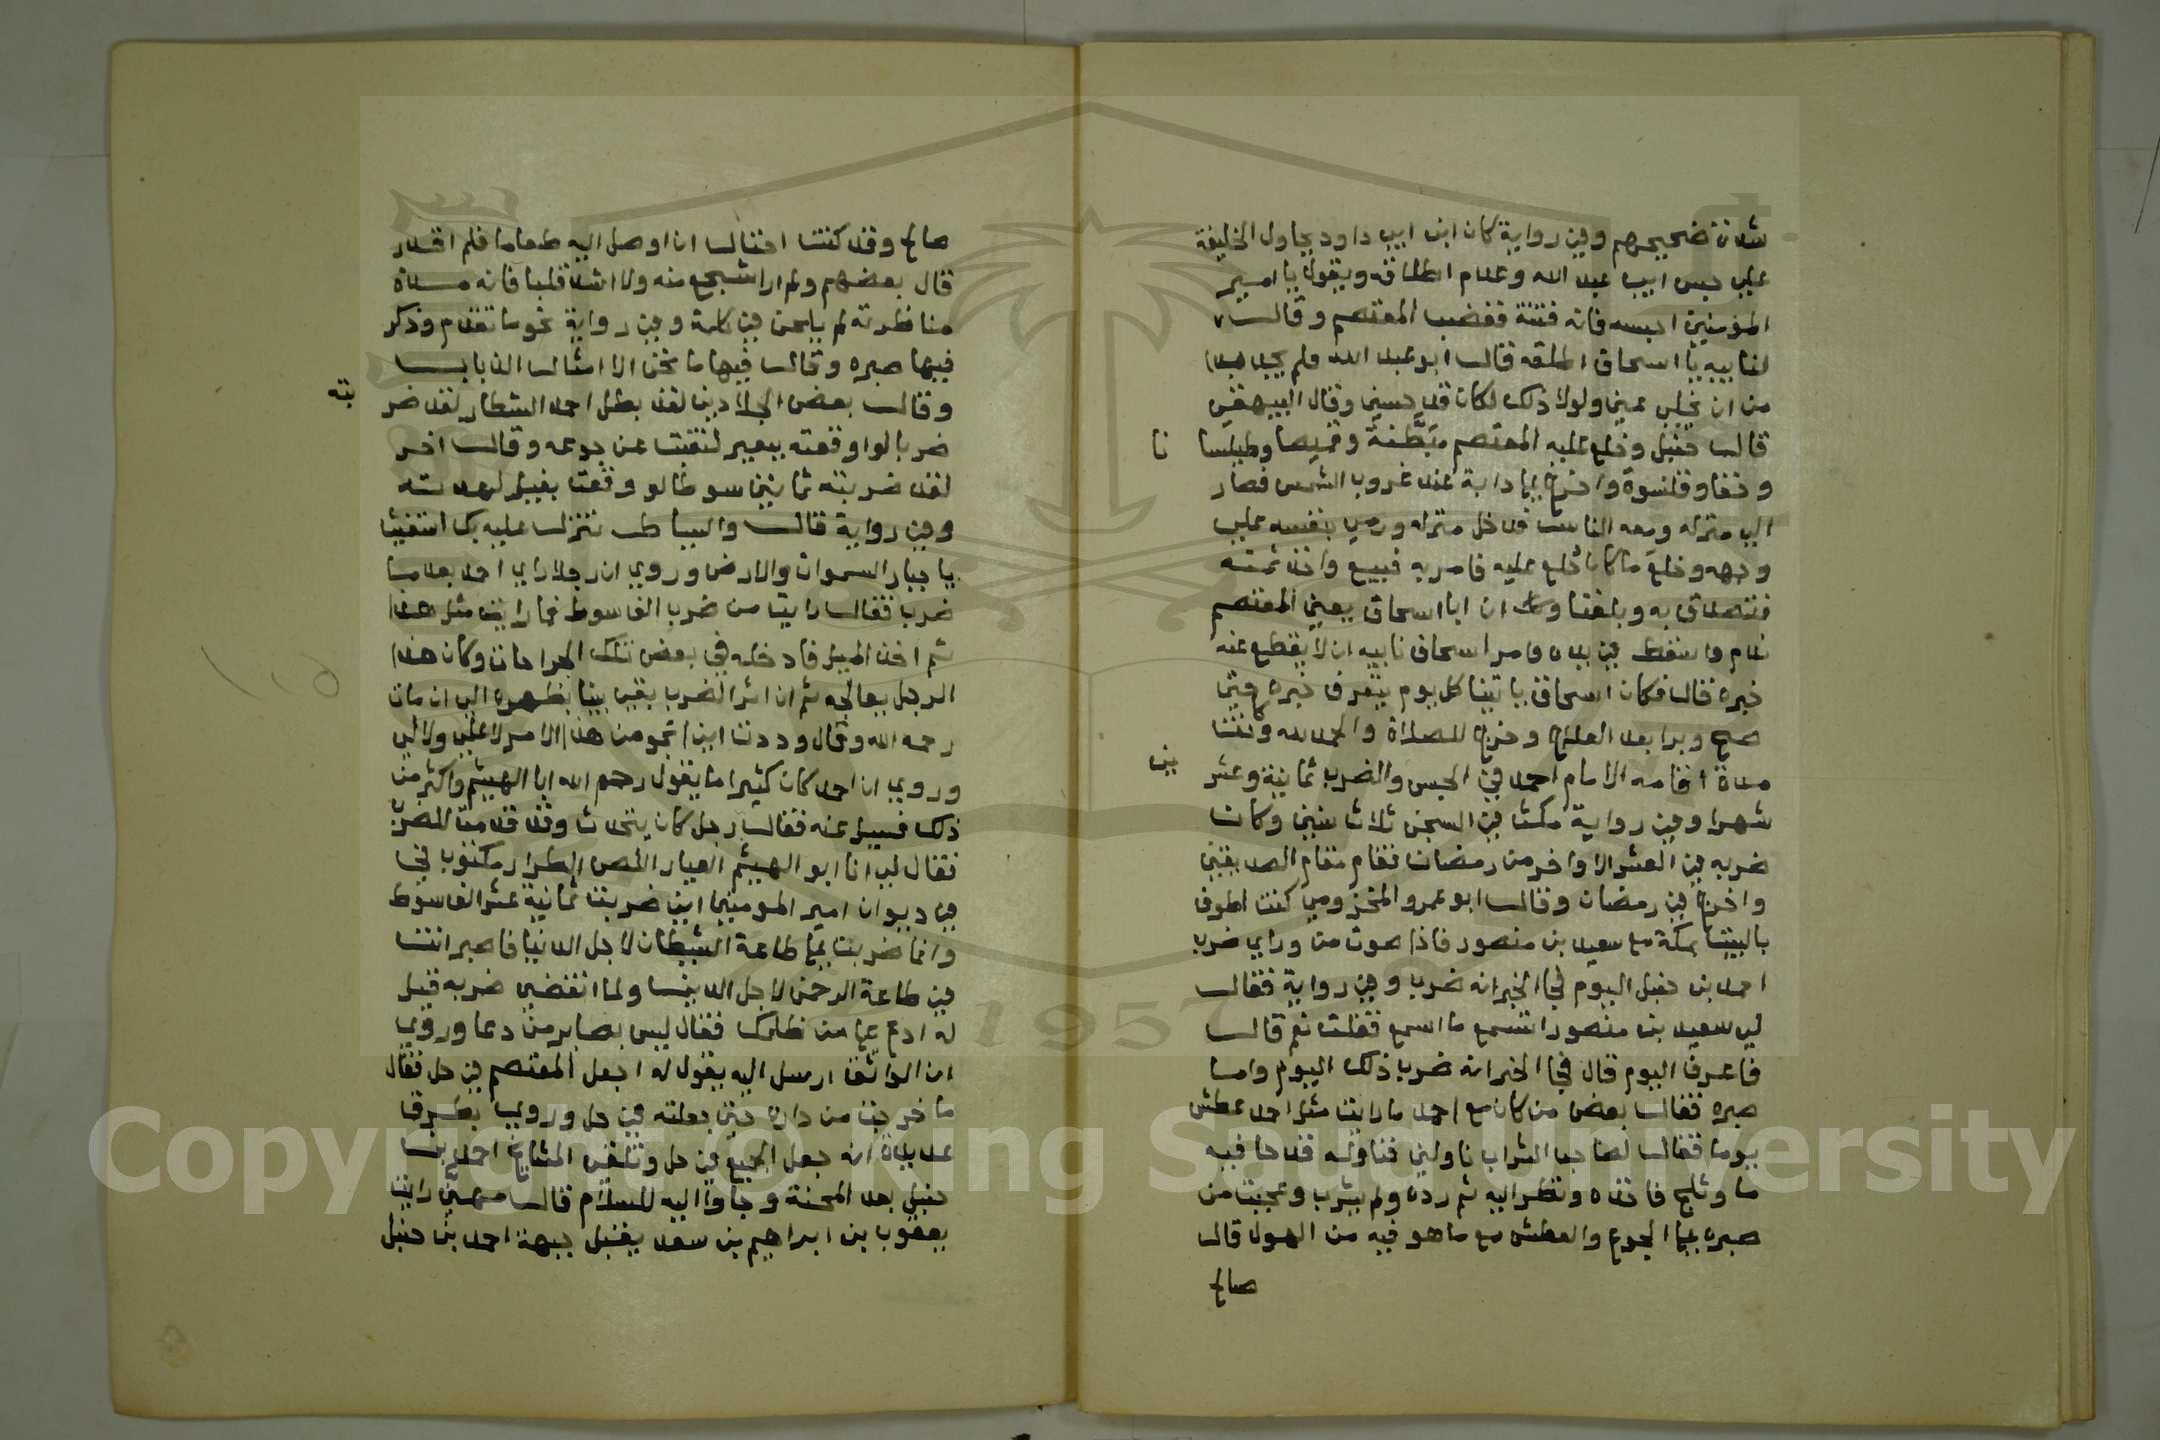 شدة ضجيجهم وفي رواية كان ابن ابي داود يحاول الخليفة
علي حبس ابي عبد الله وعدم اطلاقه ويقول يا امير
المؤمنين احبسه فانه فتنة فغضب المعتصم وقال
لنايبه يا اسحاق اطلقه قال ابو عبد الله فلم يجد بدا
من ان يخلي عني ولولا ذلك لكان قد حبسني وقال البيهقي
قال حنبل وخلع عليه المعتصم مبطنة وقميصا وطيلسا
نا
وخفا وقلنسوة واخرج علي دابة عند غروب الشمس فصار
الي منزله ومعه الناس فدخل منزله ورمي بنفسه علي
وجهه وخلع ما كان خلع عليه فامر به فبيع واخذ ثمنه
فتصدق به وبلغنا ان ابا اسحاق يعني المعتصم
ندم واسقط في يده وامر اسحاق نايبه ان لا يقطع عنه
خبره قال فكان اسحاق ياتينا كل يوم يتعرف خبره حتي
صح وبرا بعد العلاج وخرج للصلاة والحمد لله وكانت
مدة اقامه الامام احمد في الحبس والضرب ثمانية وعشر
ين
شهرا وفي رواية مكث في السجن ثلاث سنين وكان
ضربه في العشر الاواخر من رمضان فقام مقام الصديقين
واخرج في رمضان وقال ابو عمرو المخزومي كنت اطوف
بالبيت بمكة مع سعيد بن منصور فاذا صوت من وراي ضرب
احمد بن حنبل اليوم فجا الخبر انه ضرب وفي رواية فقال
لي سعيد بن منصور اتسمع ما اسمع فقلت نعم قال
فاعرف اليوم قال فجا الخبر انه ضرب ذلك اليوم واما
صبره فقال بعض من كان مع احمد ما رايت مثل احمد عطش
يوما فقال لصاحب الشراب ناولني فناوله قدحا فيه
ما وثلج فاخذه ونظر اليه ثم رده ولم يشرب وعجبت من
صبره علي الجوع والعطش مع ما هو فيه من الهول قال
صالح
صالح وقد كنت احتال ان اوصل اليه طعاما فلم اقدر
قال بعضهم ولم ار اشجع منه ولا اشد قلبا فانه مدة
مناظرته لم يلحن في كلمة وفي رواية نحو ما تقدم وذكر
فيها صبره وقال فيها ما نحن الا امثال الذباب
وقال بعض الجلادين لقد بطل احمد الشطار لقد ضر
بته
ضربا لو اوقعته ببعير لنقبت عن جوعه وقال اخر
لقد ضربته ثمانين سوطا لو وقعت بفيل لهدته
وفي رواية قال والسياط تنزل عليه بك استغيث
يا جبار السموات والارض وروي ان رجلا راي احمد بعد ما
ضرب فقال رايت من ضرب الف سوط فما رايت مثل هذا
ثم اخذ الميل فادخله في بعض تلك الجراحات وكان هذا
الرجل يعالجه ثم ان اثر الضرب بقي بينا بظهره الي ان مات
رحمه الله وقال وددت اني انجو من هذا الامر لا علي ولا لي
وروي ان احمد كان كثيرا ما يقول رحم الله ابا الهيثم واكثر من
ذلك فسيل عنه فقال رجل كان يتحدث وقد قدمت للضرب
فقال لي انا ابو الهيثم العيار اللص الطرار مكتوب في
في ديوان امير المومنين اني ضربت ثمانية عشر الف سوط
وانما ضربت علي طاعة الشيطان لاجل الدنيا فاصبر انت
في طاعة الرحمن لاجل الدين ولما انقضي ضربه قيل
له ادع علي من ظلمك فقال ليس بصابر من دعا وروي
ان الواثق ارسل اليه يقول له اجعل المعتصم في حل فقال
ما خرجت من داره حتي جعلته في حل وروي بطرق
عديدة انه جعل الجميع في حل وتلقي المشايخ احمد بن
حنبل بعد المحنة وجاوا اليه للسلام قال مهني رايت
يعقوب بن ابراهيم بن سعد يقبل جبهة احمد بن حنبل
Copyright © King Saud University
1957